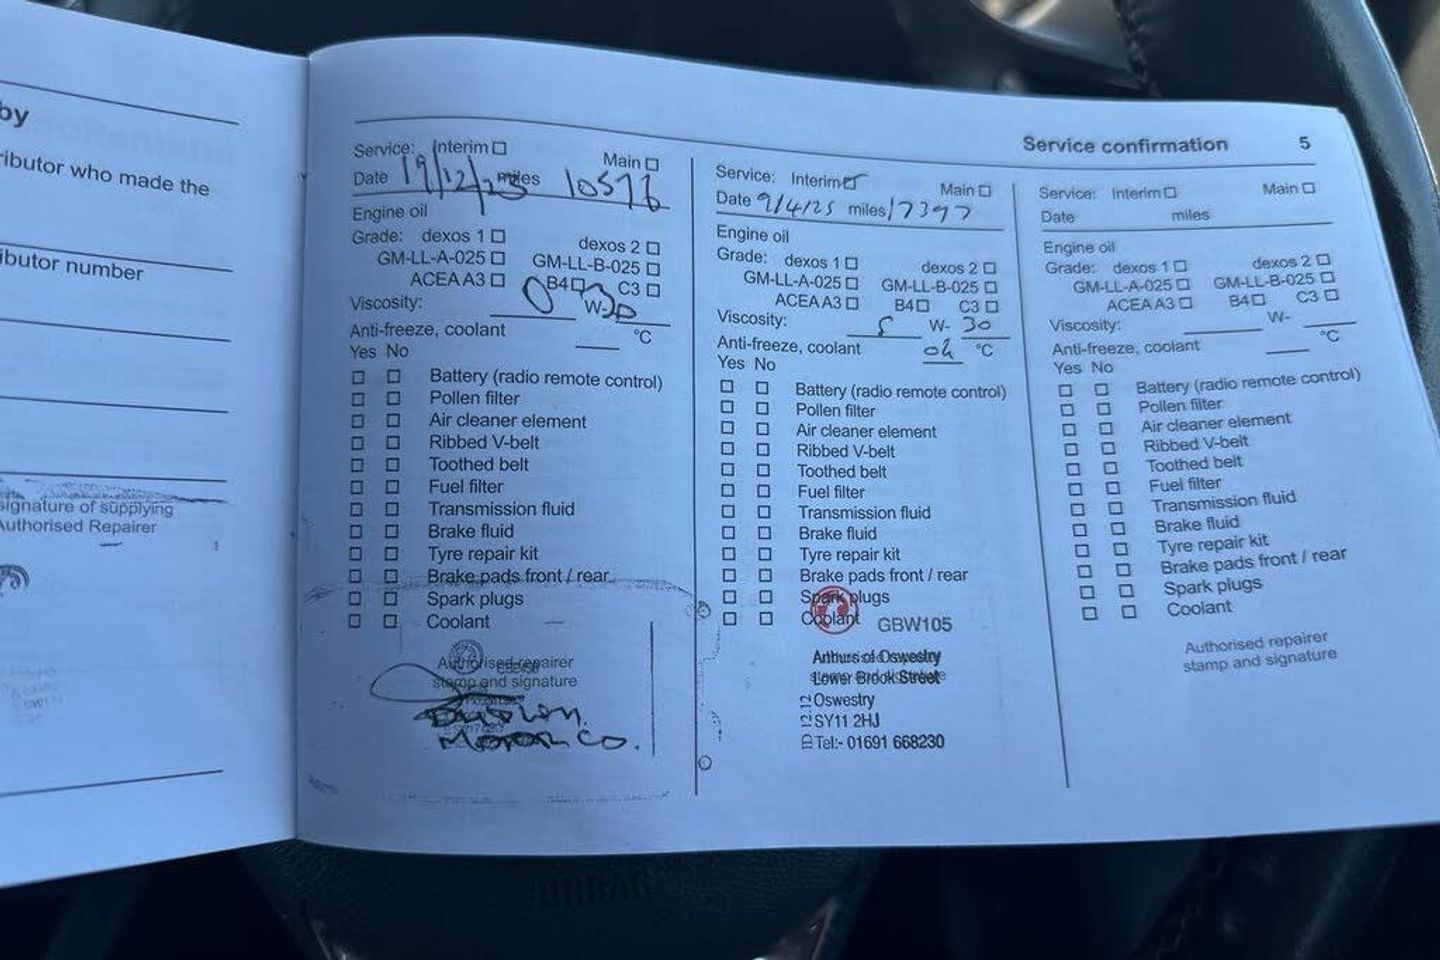 by
ributor who made the
ibutor number
signature of supplying
Authorised Repairer
Service confirmation 5
Service: Interim Main
Date 19/12/23 miles
Engine oil
Grade: dexos 1 dexos 2
GM-LL-A-025 GM-LL-B-025
ACEA A3 B4 C3
Viscosity: 0 W-30
Anti-freeze, coolant °C
Yes No
Battery (radio remote control)
Pollen filter
Air cleaner element
Ribbed V-belt
Toothed belt
Fuel filter
Transmission fluid
Brake fluid
Tyre repair kit
Brake pads front / rear
Spark plugs
Coolant
Authorised repairer
stamp and signature
Motor Co.
Service: Interim Main
Date 9/4/25 miles 17397
Engine oil
Grade: dexos 1 dexos 2
GM-LL-A-025 GM-LL-B-025
ACEA A3 B4 C3
Viscosity: 5 W- 30
Anti-freeze, coolant ok °C
Yes No
Battery (radio remote control)
Pollen filter
Air cleaner element
Ribbed V-belt
Toothed belt
Fuel filter
Transmission fluid
Brake fluid
Tyre repair kit
Brake pads front / rear
Spark plugs
Coolant
GBW105
Arthurs of Oswestry
Lower Brook Street
Oswestry
SY11 2HJ
Tel:- 01691 668230
Service: Interim Main
Date miles
Engine oil
Grade: dexos 1 dexos 2
GM-LL-A-025 GM-LL-B-025
ACEA A3 B4 C3
Viscosity: W-
Anti-freeze, coolant °C
Yes No
Battery (radio remote control)
Pollen filter
Air cleaner element
Ribbed V-belt
Toothed belt
Fuel filter
Transmission fluid
Brake fluid
Tyre repair kit
Brake pads front / rear
Spark plugs
Coolant
Authorised repairer
stamp and signature
AIRBAG